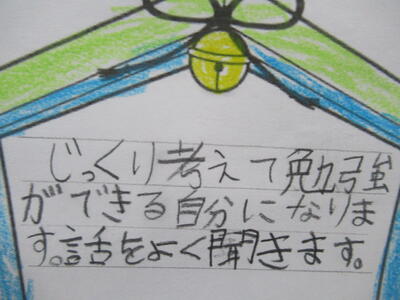 じっくり考えて勉強
ができる自分になりま
す。話をよく聞きます。